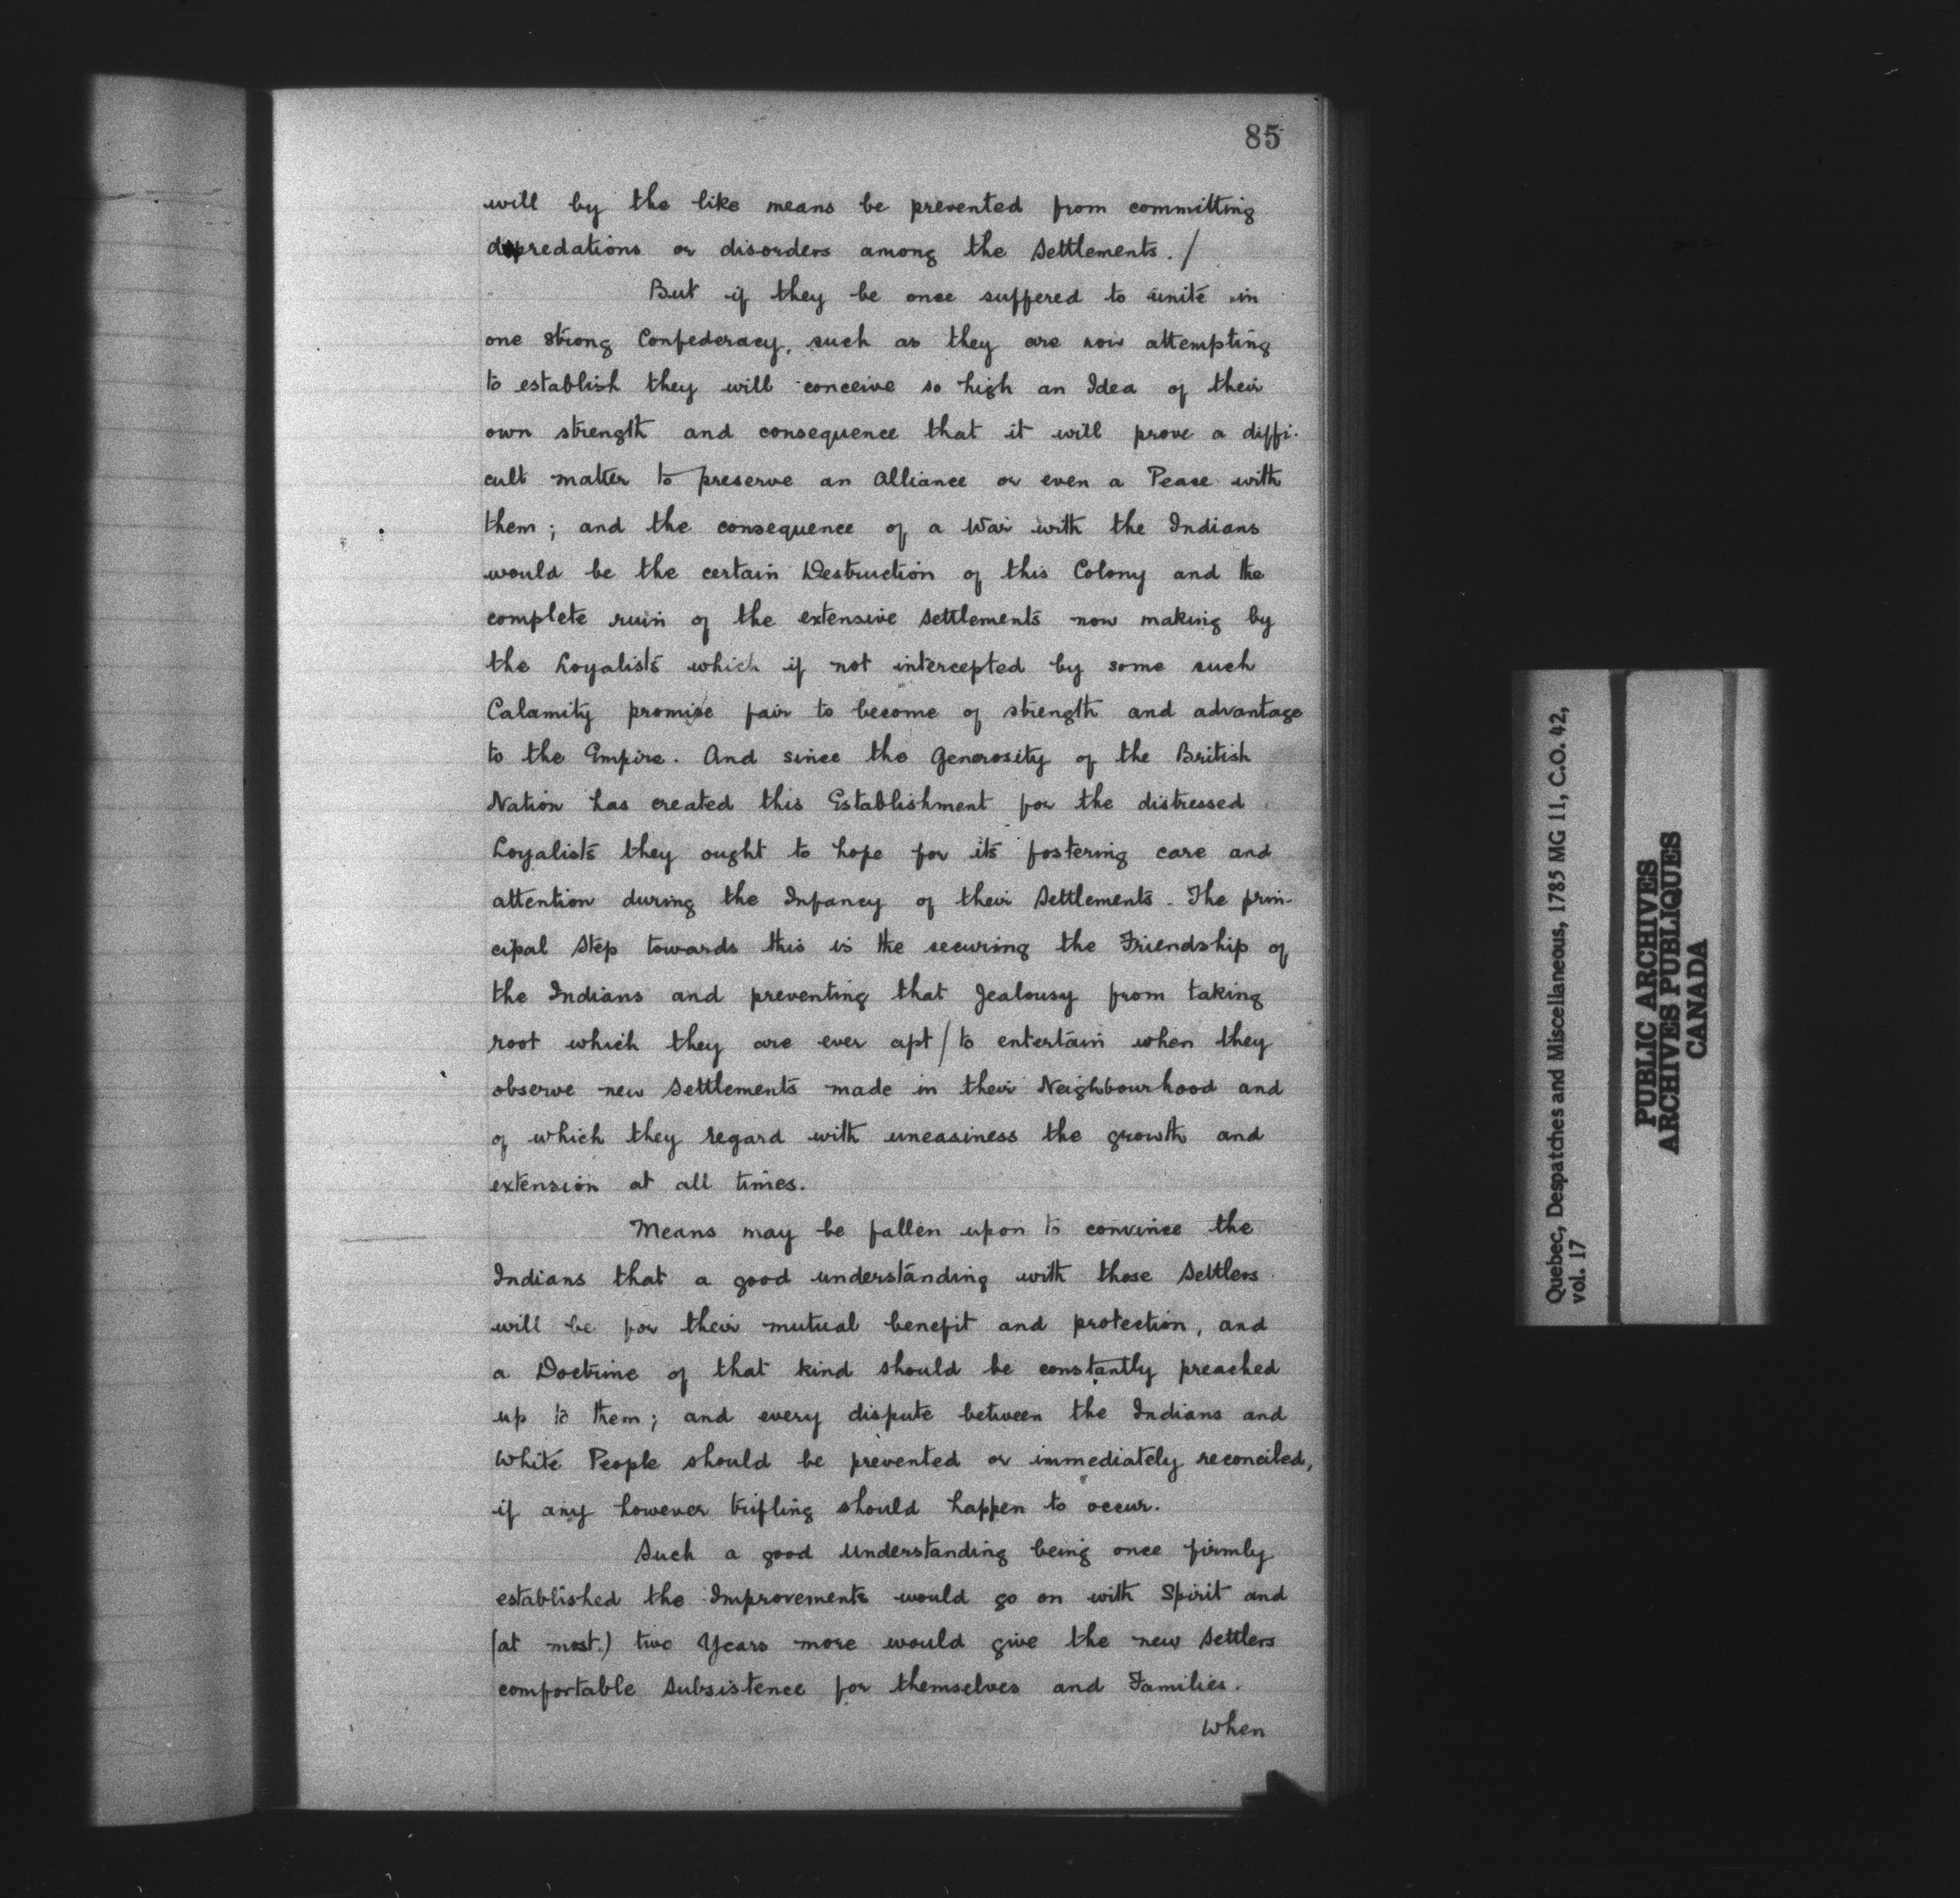 85
will by the like means be prevented from committing
depredations or disorders among the Settlements. /
But if they be once suffered to unite in
one strong Confederacy, such as they are now attempting
to establish they will conceive so high an Idea of their
own strength and consequence that it will prove a diffi-
cult matter to preserve an Alliance or even a Peace with
them; and the consequence of a War with the Indians
would be the certain Destruction of this Colony and the
complete ruin of the extensive Settlements now making by
the Loyalists which if not intercepted by some such
Calamity promise fair to become of strength and advantage
to the Empire. And since the Generosity of the British
Nation has created this Establishment for the distressed
Loyalists they ought to hope for its fostering care and
attention during the Infancy of their Settlements. The prin-
cipal Step towards this is the securing the Friendship of
the Indians and preventing that Jealousy from taking
root which they are ever apt / to entertain when they
observe new Settlements made in their Neighbourhood and
of which they regard with uneasiness the growth and
extension at all times.
Means may be fallen upon to convince the
Indians that a good understanding with those Settlers
will be for their mutual benefit and protection, and
a Doctrine of that kind should be constantly preached
up to them; and every dispute between the Indians and
White People should be prevented or immediately reconciled,
if any however trifling should happen to occur.
Such a good Understanding being once firmly
established the Improvements would go on with Spirit and
(at most.) two Years more would give the new Settlers
comfortable Subsistence for themselves and Families.
When
Quebec, Despatches and Miscellaneous, 1785 MG 11, C.O. 42,
vol. 17
PUBLIC ARCHIVES
ARCHIVES PUBLIQUES
CANADA